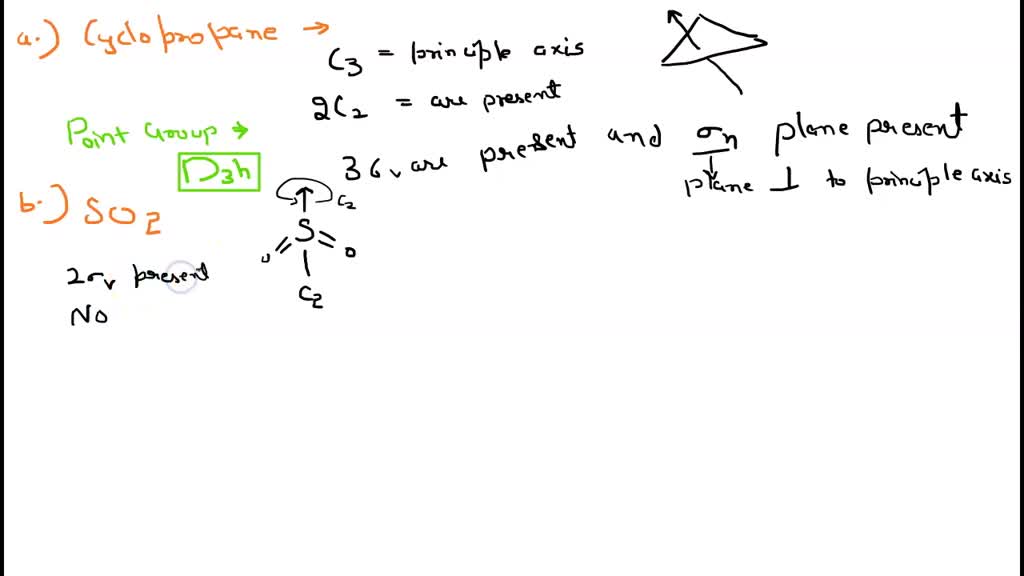 a.) Cyclopropane →
C3 = principle axis
2C2 = are present
Point Group →
D3h
3σv are present and σh plane present
plane ⊥ to principle axis
b.) SO2
C2
S
O O
C2
2σv present
No